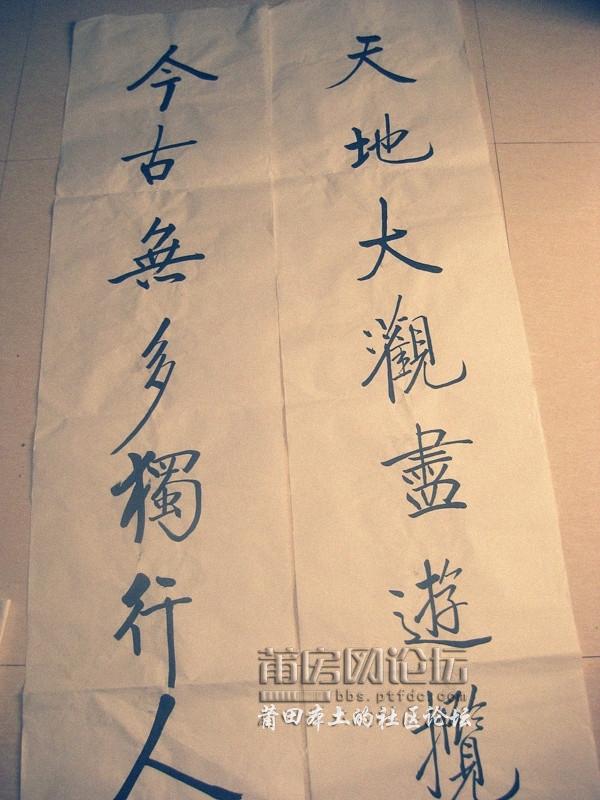 天地大觀盡遊攬
今古無多獨行人
莆房网论坛
bbs.ptfdc.com
莆田本土的社区论坛